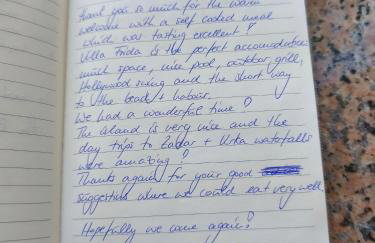 Thank you so much for the warm
welcome with a self cooked meal
which was tasting excellent!
Villa Frida is the perfect accomodation:
much space, nice pool, outdoor grill,
Hollywood swing and the short way
to the beach + habour.
We had a wonderful time!
The island is very nice and the
day trips to Zadar + Krka waterfalls
were amazing!
Thanks again for your good
suggestion where we could eat very well.
Hopefully we come again!